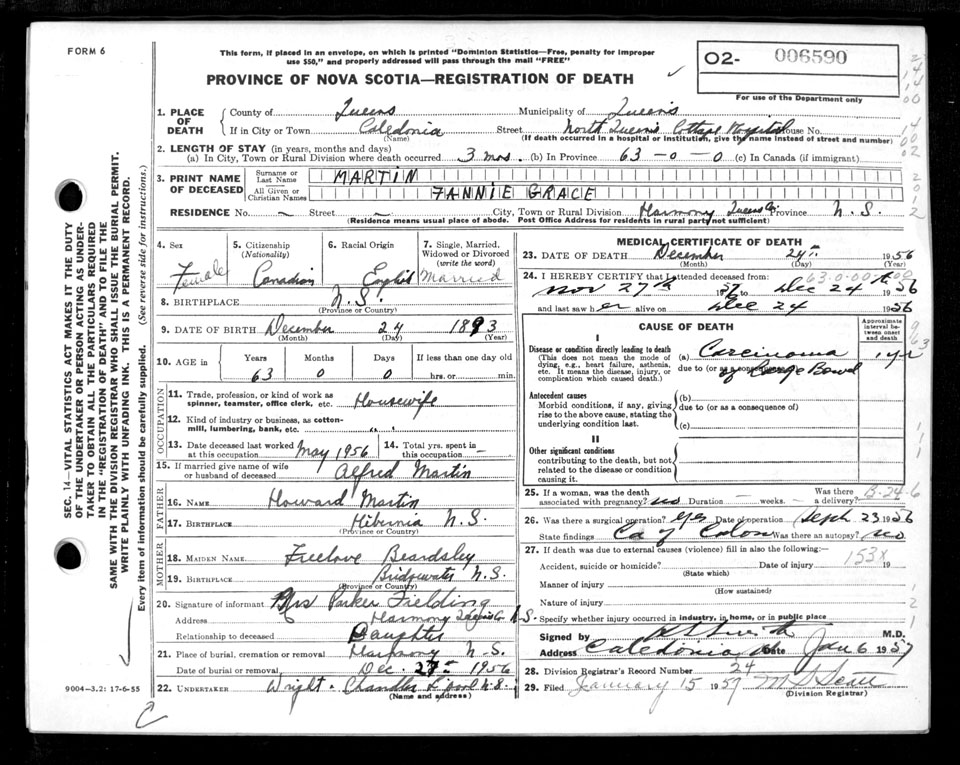 FORM 6
This form, if placed in an envelope, on which is printed "Dominion Statistics—Free, penalty for improper
use $50," and properly addressed will pass through the mail "FREE"
PROVINCE OF NOVA SCOTIA—REGISTRATION OF DEATH
O2- 006590
For use of the Department only
1. PLACE OF DEATH
County of Queens Municipality of Queens
If in City or Town Caledonia Street North Queens Cottage Hospital House No.
(Name) (If death occurred in a hospital or institution, give the name instead of street and number)
2. LENGTH OF STAY (in years, months and days)
(a) In City, Town or Rural Division where death occurred 3 mos. (b) In Province 63-0-0 (c) In Canada (if immigrant)
3. PRINT NAME OF DECEASED
Surname or Last Name MARTIN
All Given or Christian Names FANNIE GRACE
RESIDENCE No. — Street — City, Town or Rural Division Harmony Queens Co. Province N.S.
(Residence means usual place of abode. Post Office Address for residents in rural parts not sufficient)
4. Sex Female
5. Citizenship (Nationality) Canadian
6. Racial Origin English
7. Single, Married, Widowed or Divorced (write the word) Married
8. BIRTHPLACE N.S.
(Province or Country)
9. DATE OF BIRTH December 24 1893
(Month) (Day) (Year)
10. AGE in Years Months Days If less than one day old
63 0 0 hrs. or min.
OCCUPATION
11. Trade, profession, or kind of work as spinner, teamster, office clerk, etc. Housewife
12. Kind of industry or business, as cotton-mill, lumbering, bank, etc. " "
13. Date deceased last worked at this occupation May 1956
14. Total yrs. spent in this occupation —
15. If married give name of wife or husband of deceased Alfred Martin
FATHER
16. NAME Howard Martin
17. BIRTHPLACE Hibernia N.S.
(Province or Country)
MOTHER
18. MAIDEN NAME Freelove Beardsley
19. BIRTHPLACE Bridgewater N.S.
(Province or Country)
20. Signature of informant Mrs Parker Fielding
Address Harmony Queens Co. N.S.
Relationship to deceased Daughter
21. Place of burial, cremation or removal Harmony N.S.
Date of burial or removal Dec. 27th 1956
22. UNDERTAKER Wright & Chandler L'pool N.S.
(Name and address)
MEDICAL CERTIFICATE OF DEATH
23. DATE OF DEATH December 24th 1956
(Month) (Day) (Year)
24. I HEREBY CERTIFY that I attended deceased from: 63-0-00
Nov 27th 1956 to Dec 24 1956
and last saw her alive on Dec 24 1956
CAUSE OF DEATH
Approximate interval between onset and death
I
Disease or condition directly leading to death
(This does not mean the mode of dying, e.g., heart failure, asthenia, etc. It means the disease, injury, or complication which caused death.)
(a) Carcinoma 1 yr
due to (or as a consequence of)
of Large Bowel
Antecedent causes
Morbid conditions, if any, giving rise to the above cause, stating the underlying condition last.
(b)
due to (or as a consequence of)
(c)
II
Other significant conditions
contributing to the death, but not related to the disease or condition causing it.
25. If a woman, was the death associated with pregnancy? no Duration — weeks. Was there a delivery?
26. Was there a surgical operation? Yes Date of operation Sept 23 1956
State findings Ca of Colon Was there an autopsy? no
27. If death was due to external causes (violence) fill in also the following:—
Accident, suicide or homicide? Date of injury 153X 19
(State which)
Manner of injury
(How sustained)
Nature of injury
Specify whether injury occurred in industry, in home, or in public place
Signed by M.D.
Address Caledonia Date Jan 6 1957
28. Division Registrar's Record Number 24
29. Filed January 15 1957
(Division Registrar)
SEC. 14—VITAL STATISTICS ACT MAKES IT THE DUTY
OF THE UNDERTAKER OR PERSON ACTING AS UNDER-
TAKER TO OBTAIN ALL THE PARTICULARS REQUIRED
IN THE "REGISTRATION OF DEATH" AND TO FILE THE
SAME WITH THE DIVISION REGISTRAR WHO SHALL ISSUE THE BURIAL PERMIT.
WRITE PLAINLY WITH UNFADING INK. THIS IS A PERMANENT RECORD.
Every item of information should be carefully supplied. (See reverse side for instructions.)
9004—3.2: 17-6-55